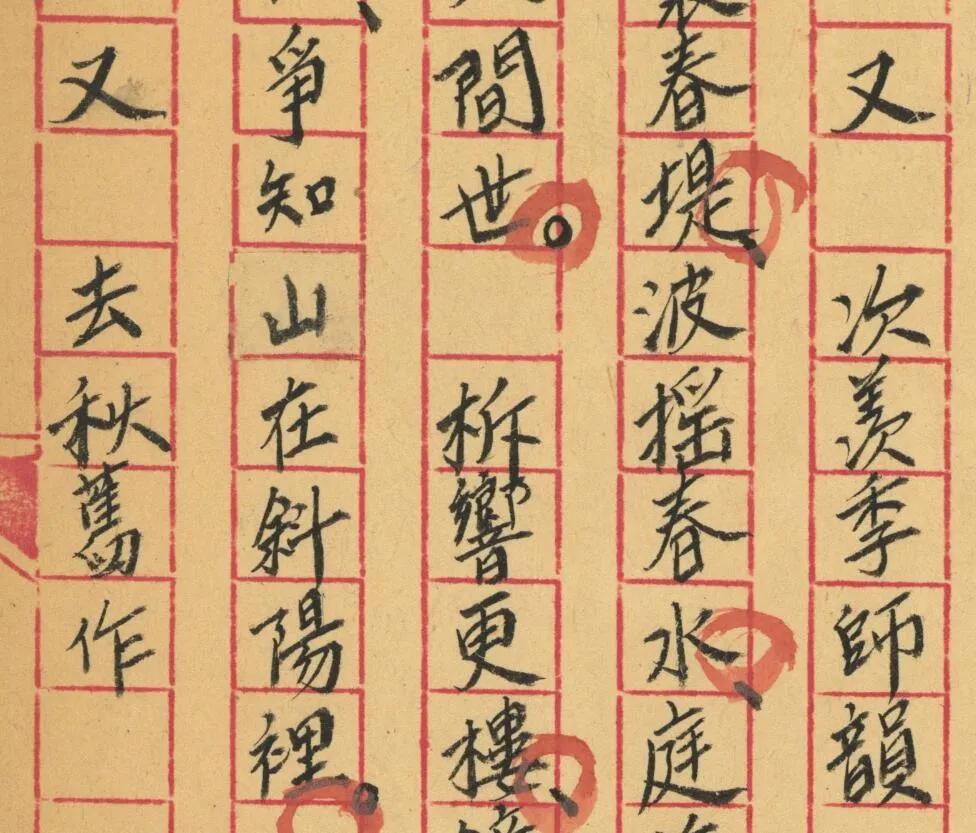 又 次羨季師韻
春堤、波搖春水、庭
間世。 柝響更樓、
爭知山在斜陽裡。
又 去秋舊作